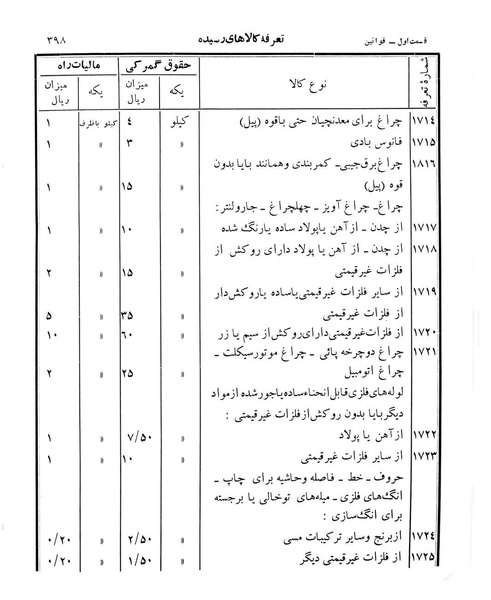 قسمت اول ــ قوانین تعرفهٔ کالاهای رسیده ۳۹۸
شمارهٔ تعرفه نوع کالا حقوق گمرکی مالیات راه
یکه میزان ریال یکه میزان ریال
۱۷۱۴ چراغ برای معدنچیان حتی باقوه (پیل) کیلو ۴ کیلو باظرف ۱
۱۷۱۵ فانوس بادی » ۳ » ۱
۱۸۱۶ چراغ برق جیبی ــ کمربندی وهمانند بایا بدون
قوه (پیل) » ۱۵ » ۱
چراغ ــ چراغ آویز ــ چهلچراغ ــ جارولنتر :
۱۷۱۷ از چدن ــ از آهن یاپولاد ساده یارنگ شده » ۱۰ » ۱
۱۷۱۸ از چدن ــ از آهن یا پولاد دارای روکش از
فلزات غیرقیمتی » ۱۵ » ۲
۱۷۱۹ از سایر فلزات غیرقیمتی یاساده یاروکش دار
از فلزات غیرقیمتی » ۳۵ » ۵
۱۷۲۰ از فلزات غیرقیمتی دارای روکش از سیم یا زر » ۶۰ » ۱۰
۱۷۲۱ چراغ دوچرخه پائی ــ چراغ موتورسیکلت ــ
چراغ اتومبیل » ۲۵ » ۲
لوله های فلزی قابل انحناء ساده یاجور شده از مواد
دیگر بایا بدون روکش از فلزات غیرقیمتی :
۱۷۲۲ از آهن یا پولاد » ۷/۵۰ » ۱
۱۷۲۳ از سایر فلزات غیرقیمتی » ۱۰ » ۱
حروف ــ خط ــ فاصله وحاشیه برای چاپ ــ
انگ های فلزی ــ میله های توخالی یا برجسته
برای انگ سازی :
۱۷۲۴ از برنج وسایر ترکیبات مسی » ۲/۵۰ » ۰/۲۰
۱۷۲۵ از فلزات غیرقیمتی دیگر » ۱/۵۰ » ۰/۲۰